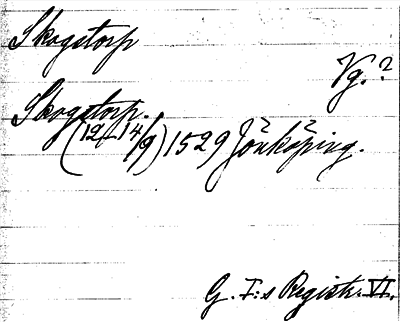 Skogstorp
Vg.?
Skogstorp.
(12–14/9) 1529 Jönköping.
G. I:s Registr. VI.